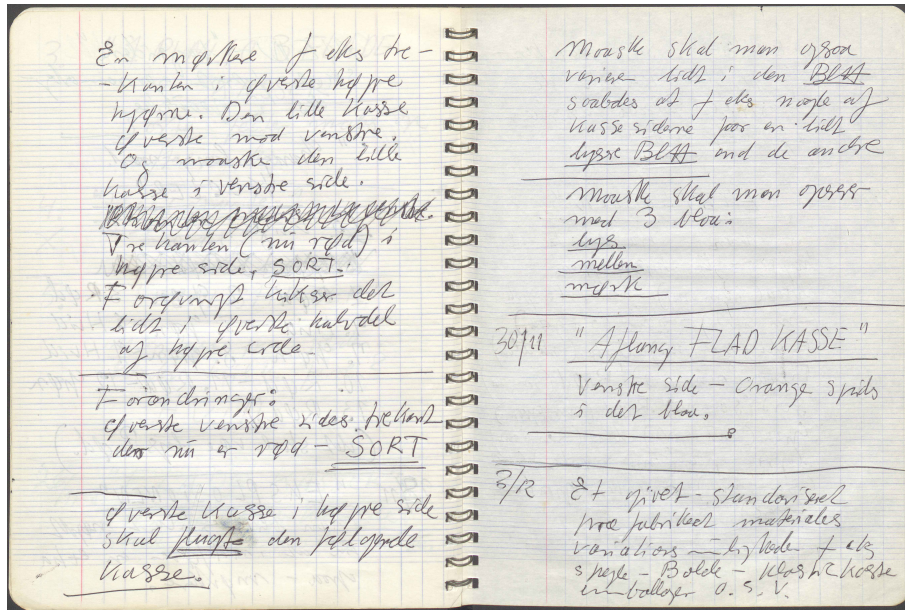 En mørkere f eks tre-
-kanten i øverste højre
hjørne. Den lille kasse
øverste mod venstre.
Og maaske den lille
kasse i venstre side.
Trekanten (nu rød) i
højre side, SORT.
Forøvrigt kikser det
lidt i øverste halvdel
af højre side.
Forandringer:
øverste venstre sides trekant
der nu er rød - SORT
øverste kasse i højre side
skal den følgende
kasse.
Maaske skal man ogsaa
variere lidt i den BLAA
saaledes at f eks nogle af
kasse siderne faar en lidt
lysere BLAA end de andre
Maaske skal man operer
med 3 blaa:
lys
mellem
mørk
30/11 "Aflang FLAD KASSE"
Venstre side - Orange spids
i det blaa.
3/12 Et givet - standariseret
præfabrikeret materiales
variations - ligheder f eks
spejle - Bolde - Plastickasse
emballager O.S.V.